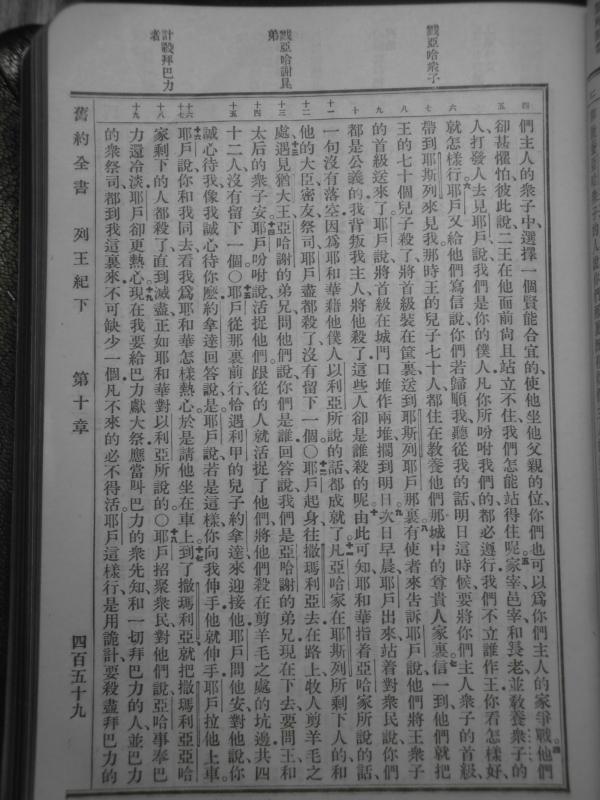 戮亞哈衆子
戮亞哈謝昆
弟
計殺拜巴力
者
四
們主人的衆子中、選擇一個賢能合宜的、使他坐他父親的位、你們也可以爲你們主人的家爭戰他們
五
卻甚懼怕、彼此說、二王在他面前尙且站立不住、我們怎能站得住呢。家宰邑宰和長老、並教養衆子的
人、打發人去見耶戶說、我們是你的僕人、凡你所吩咐我們的、都必遵行、我們不立誰作王、你看怎樣好、
六
就怎樣行。耶戶又給他們寫信說、你們若歸順我、聽從我的話、明日這時候、要將你們主人衆子的首級、
七
帶到耶斯列來見我、那時王的兒子七十人、都住在教養他們那城中的尊貴人家裏。信一到、他們就把
八
王的七十個兒子殺了、將首級裝在筐裏、送到耶斯列耶戶那裏。有使者來告訴耶戶說、他們將王衆子
九
的首級送來了、耶戶說、將首級在城門口堆作兩堆、擱到明日。次日早晨、耶戶出來、站着對衆民說、你們
十
都是公義的、我背叛我主人、將他殺了、這些人卻是誰殺的呢。由此可知、耶和華指着亞哈家所說的話、
十一
一句沒有落空、因爲耶和華藉他僕人以利亞所說的話、都成就了。凡亞哈家在耶斯列所剩下的人、和
他的大臣、密友、祭司、耶戶盡都殺了、沒有留下一個。〇耶戶起身往撒瑪利亞去、在路上牧人剪羊毛之
十三
處、遇見猶大王亞哈謝的弟兄、問他們說、你們是誰、回答說、我們是亞哈謝的弟兄、現在下去要問王和
十四
太后的衆子安。耶戶吩咐說、活捉他們、跟從的人就活捉了他們、將他們殺在剪羊毛之處的坑邊、共四
十五
十二人、沒有留下一個。〇耶戶從那裏前行、恰遇利甲的兒子約拿達來迎接他、耶戶問他安、對他說、你
誠心待我、像我誠心待你麼、約拿達回答說、是、耶戶說、若是這樣、你向我伸手、他就伸手、耶戶拉他上車。
十六
十七
耶戶說、你和我同去、看我爲耶和華怎樣熱心、於是請他坐在車上。到了撒瑪利亞、就把撒瑪利亞亞哈
十八
家剩下的人都殺了、直到滅盡、正如耶和華對以利亞所說的。〇耶戶招聚衆民、對他們說、亞哈事奉巴
十九
力還冷淡、耶戶卻更熱心。現在我要給巴力獻大祭、應當叫巴力的衆先知、和一切拜巴力的人、並巴力
的衆祭司、都到我這裏來、不可缺少一個、凡不來的必不得活、耶戶這樣行、是用詭計要殺盡拜巴力的
舊約全書 列王紀下 第十章 四百五十九